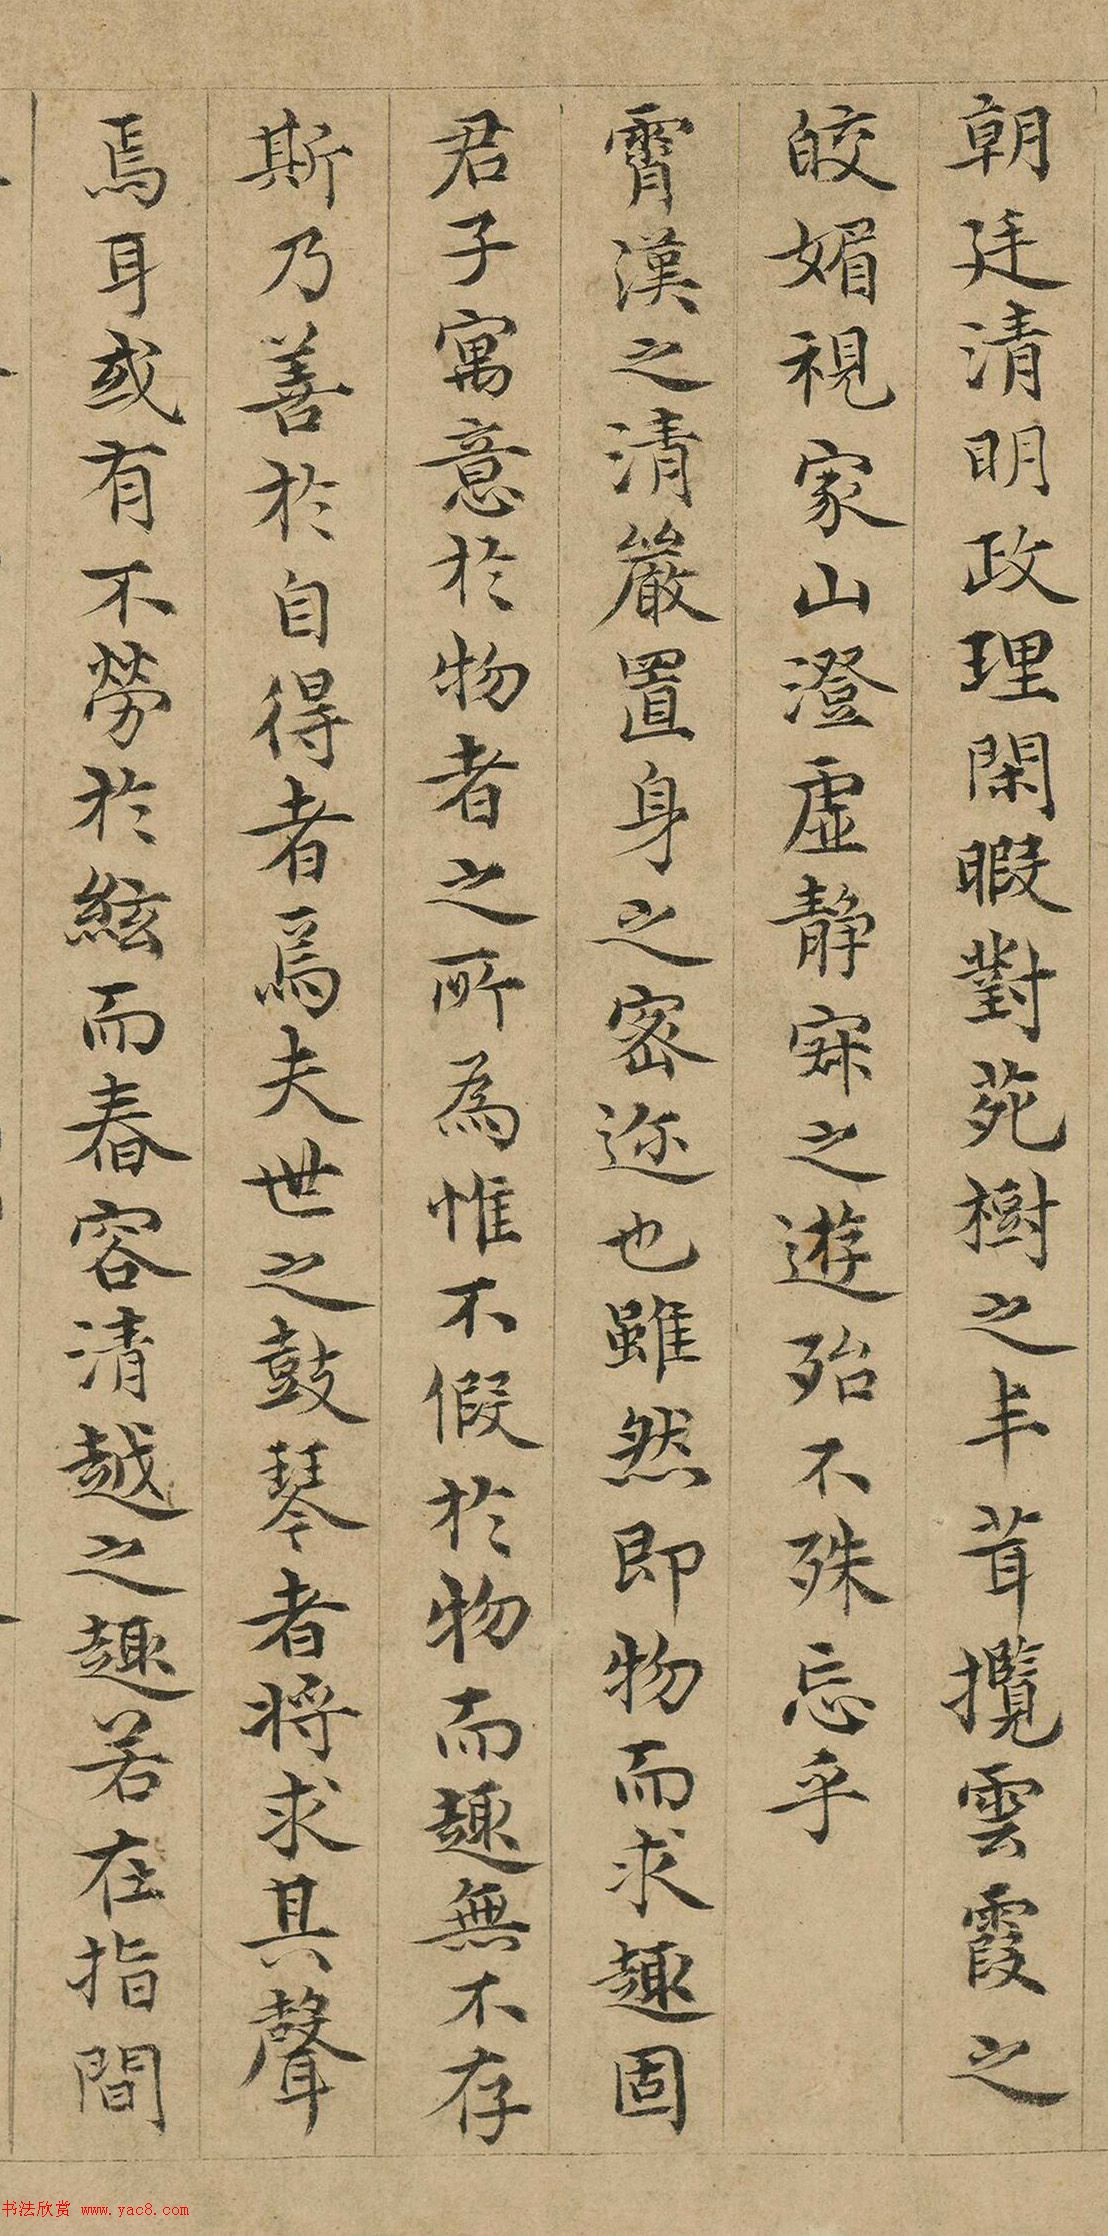 朝廷清明政理閑暇對苑樹之丰茸攬雲霞之
皎媚視家山澄虛靜寂之遊殆不殊忘乎
霄漢之清嚴置身之密迩也雖然即物而求趣固
君子寓意於物者之所為惟不假於物而趣無不存
斯乃善於自得者焉夫世之鼓琴者將求其聲
焉耳或有不勞於絃而舂容清越之趣若在指間
书法欣赏 www.yac8.com